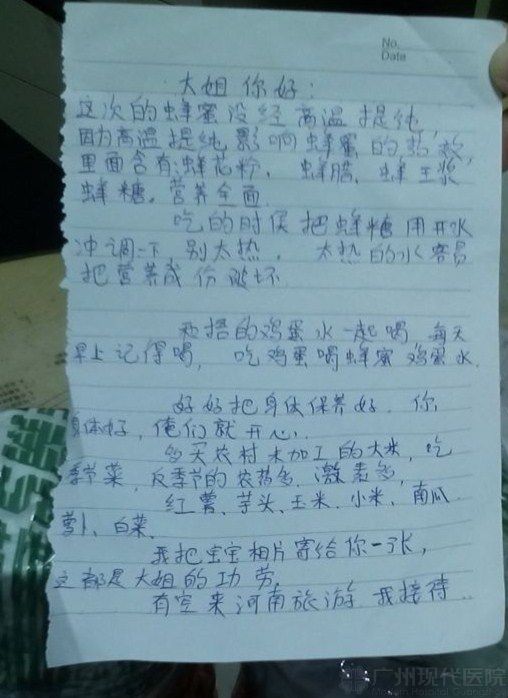 No.
Date
大姐你好：
这次的蜂蜜没经高温提纯
因为高温提纯影响蜂蜜的
里面含有：蜂花粉，蜂腊，蜂王浆
蜂糖，营养全面
吃的时候把蜂糖用开水
冲调一下，别太热，太热的水容易
把营养成份破坏
和捂的鸡蛋水一起喝，每天
早上记得喝，吃鸡蛋喝蜂蜜鸡蛋水
好好把身体保养好，你
身体好，俺们就开心，
多买农村未加工的大米，吃
季节菜，反季节的农药多，激素多，
红薯、芋头、玉米、小米、南瓜
萝卜、白菜
我把宝宝相片寄给你一张，
这都是大姐的功劳，
有空来河南旅游 我接待..
广州现代医院